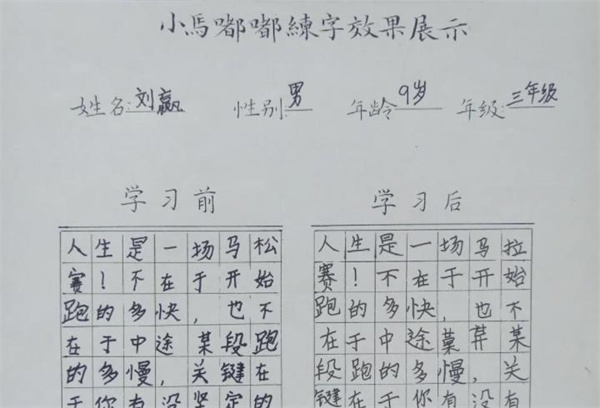 小馬嘟嘟練字效果展示
姓名:刘赢 性别:男 年龄9岁 年级:三年级
学习前
人生是一场马松
赛!不在于开始
跑的多快,也不
在于中途某段跑
的多慢,关键在
于你有没坚定的
学习后
人生是一场马拉
赛!不在于开始
跑的多快,也不
在于中途葉芹某
段跑的多慢,关
键在于你有没有